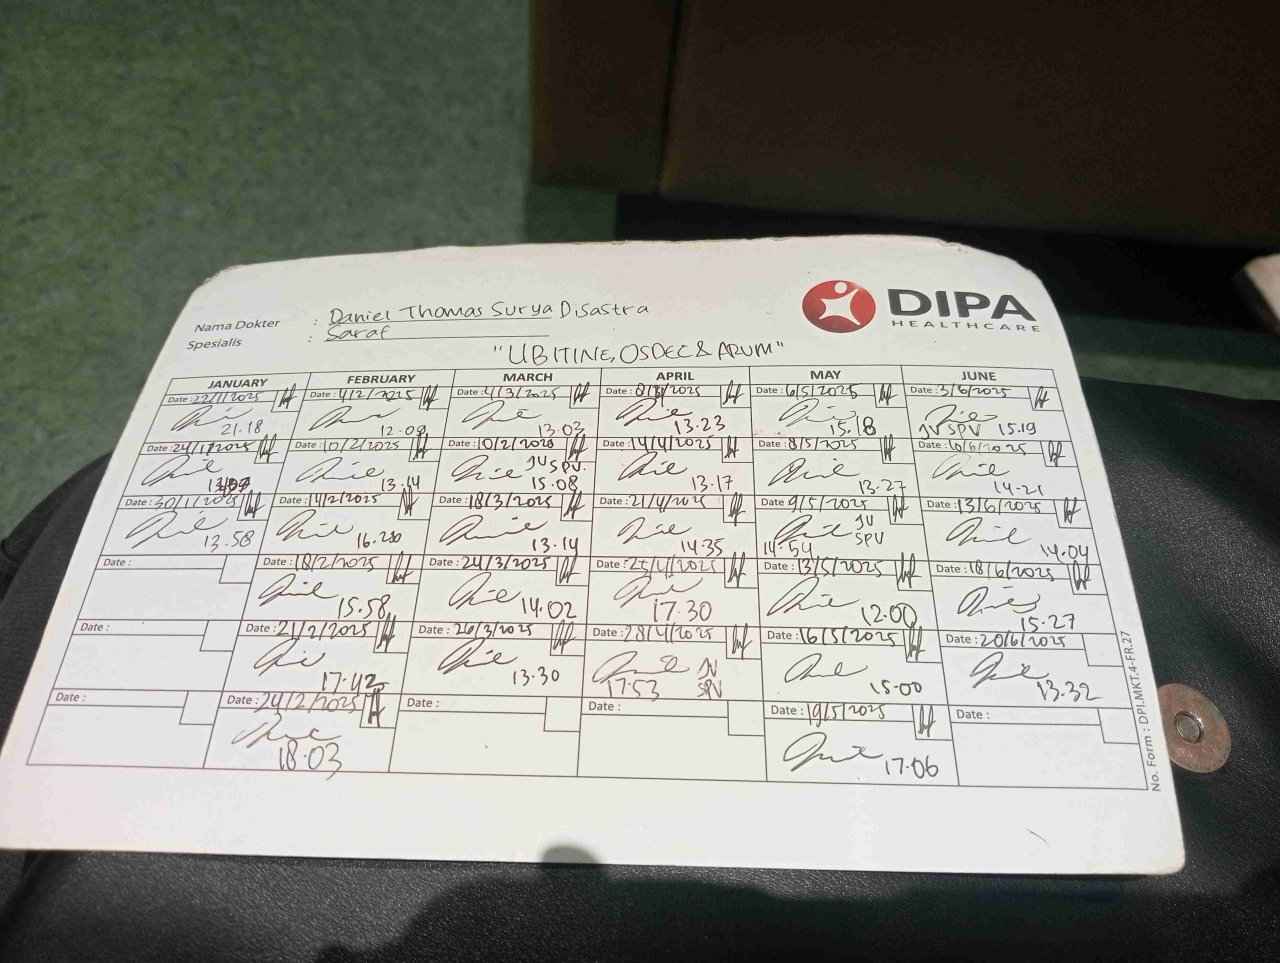 DIPA
HEALTHCARE
Nama Dokter : Daniel Thomas Surya Disastra
Spesialis : Saraf
"UBITINE, OSDEC & ARUM"
JANUARY FEBRUARY MARCH APRIL MAY JUNE
Date : 22/1/2025 Date : 4/2/2025 Date : 4/3/2025 Date : 8/4/2025 Date : 6/5/2025 Date : 3/6/2025
21.18 12.09 13.03 13.23 15.18 JV SPV 15.19
Date : 24/1/2025 Date : 10/2/2025 Date : 10/2/2025 Date : 14/4/2025 Date : 8/5/2025 Date : 10/6/2025
13.14 JV SPV. 15.08 13.17 13.27 14.21
Date : 30/1/2025 Date : 14/2/2025 Date : 18/3/2025 Date : 21/4/2025 Date : 9/5/2025 Date : 13/6/2025
13.58 13.14 14.35 14.54 JV SPV 14.04
Date : Date : 18/2/2025 Date : 24/3/2025 Date : 25/4/2025 Date : 13/5/2025 Date : 18/6/2025
15.58 14.02 17.30 12.00 15.27
Date : Date : 21/2/2025 Date : 26/3/2025 Date : 28/4/2025 Date : 16/5/2025 Date : 20/6/2025
17.42 13.30 17.53 JV SPV 15.00 13.32
Date : Date : 24/2/2025 Date : Date : Date : 19/5/2025 Date :
18.03 17.06
No. Form : DPI.MKT.4-FR.27